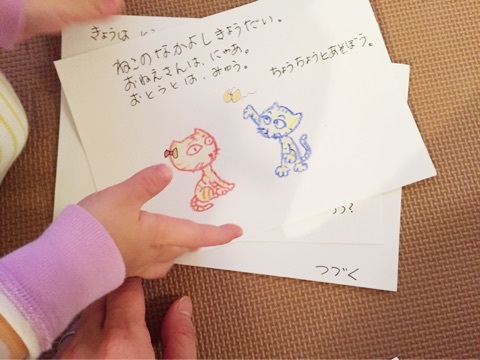 きょうは
ねこのなかよしきょうだい。
おねえさんは、にゃあ。
おとうとは、みゅう。
ちょうちょうとあそぼう。
う？
つづく